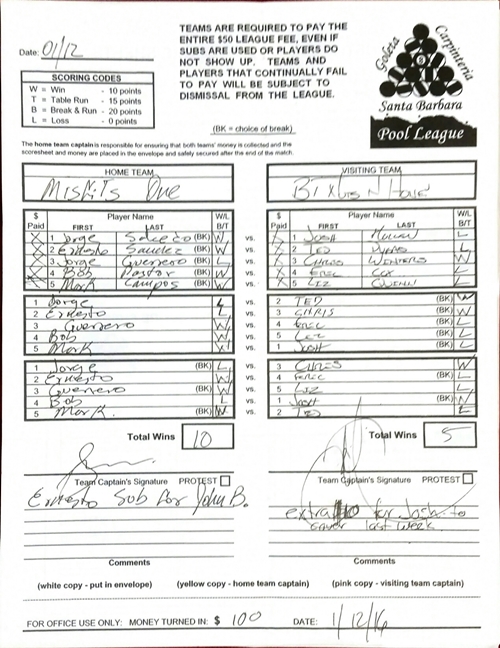 Date: 01/12
SCORING CODES
W = Win - 10 points
T = Table Run - 15 points
B = Break & Run - 20 points
L = Loss - 0 points
TEAMS ARE REQUIRED TO PAY THE
ENTIRE $50 LEAGUE FEE, EVEN IF
SUBS ARE USED OR PLAYERS DO
NOT SHOW UP. TEAMS AND
PLAYERS THAT CONTINUALLY FAIL
TO PAY WILL BE SUBJECT TO
DISMISSAL FROM THE LEAGUE.
(BK = choice of break)
Goleta Carpinteria
Santa Barbara
Pool League
The home team captain is responsible for ensuring that both teams' money is collected and the
scoresheet and money are placed in the envelope and safely secured after the end of the match.
HOME TEAM
Misfits One
$ Paid Player Name W/L B/T
FIRST LAST
X 1 Jorge (BK) W vs.
X 2 Ernesto Sanchez W vs.
X 3 Jorge Guerrero (BK) L vs.
X 4 Bob Pastor W vs.
X 5 Mark Campos (BK) W vs.
1 Jorge L vs.
2 Ernesto L vs.
3 Guerrero W vs.
4 Bob W vs.
5 Mark vs.
1 Jorge (BK) L vs.
2 Ernesto W vs.
3 Guerrero (BK) W vs.
4 Bob L vs.
5 Mark. (BK) W vs.
Total Wins 10
Team Captain's Signature PROTEST
Ernesto Sub for John B.
Comments
VISITING TEAM
$ Paid Player Name W/L B/T
FIRST LAST
1 Josh L
2 Ted L
3 Chris Winters W
4 Eric Cox L
5 Liz Quinn L
2 TED (BK) W
3 CHRIS (BK) W
4 Eric (BK) L
5 Liz (BK) L
1 Josh (BK) L
3 CHRIS W
4 Eric (BK) L
5 Liz L
1 Josh (BK) W
2 TED L
Total Wins 5
Team Captain's Signature PROTEST
extra for Josh to
cover last week
Comments
(white copy - put in envelope) (yellow copy - home team captain) (pink copy - visiting team captain)
FOR OFFICE USE ONLY: MONEY TURNED IN: $ 100 DATE: 1/12/16